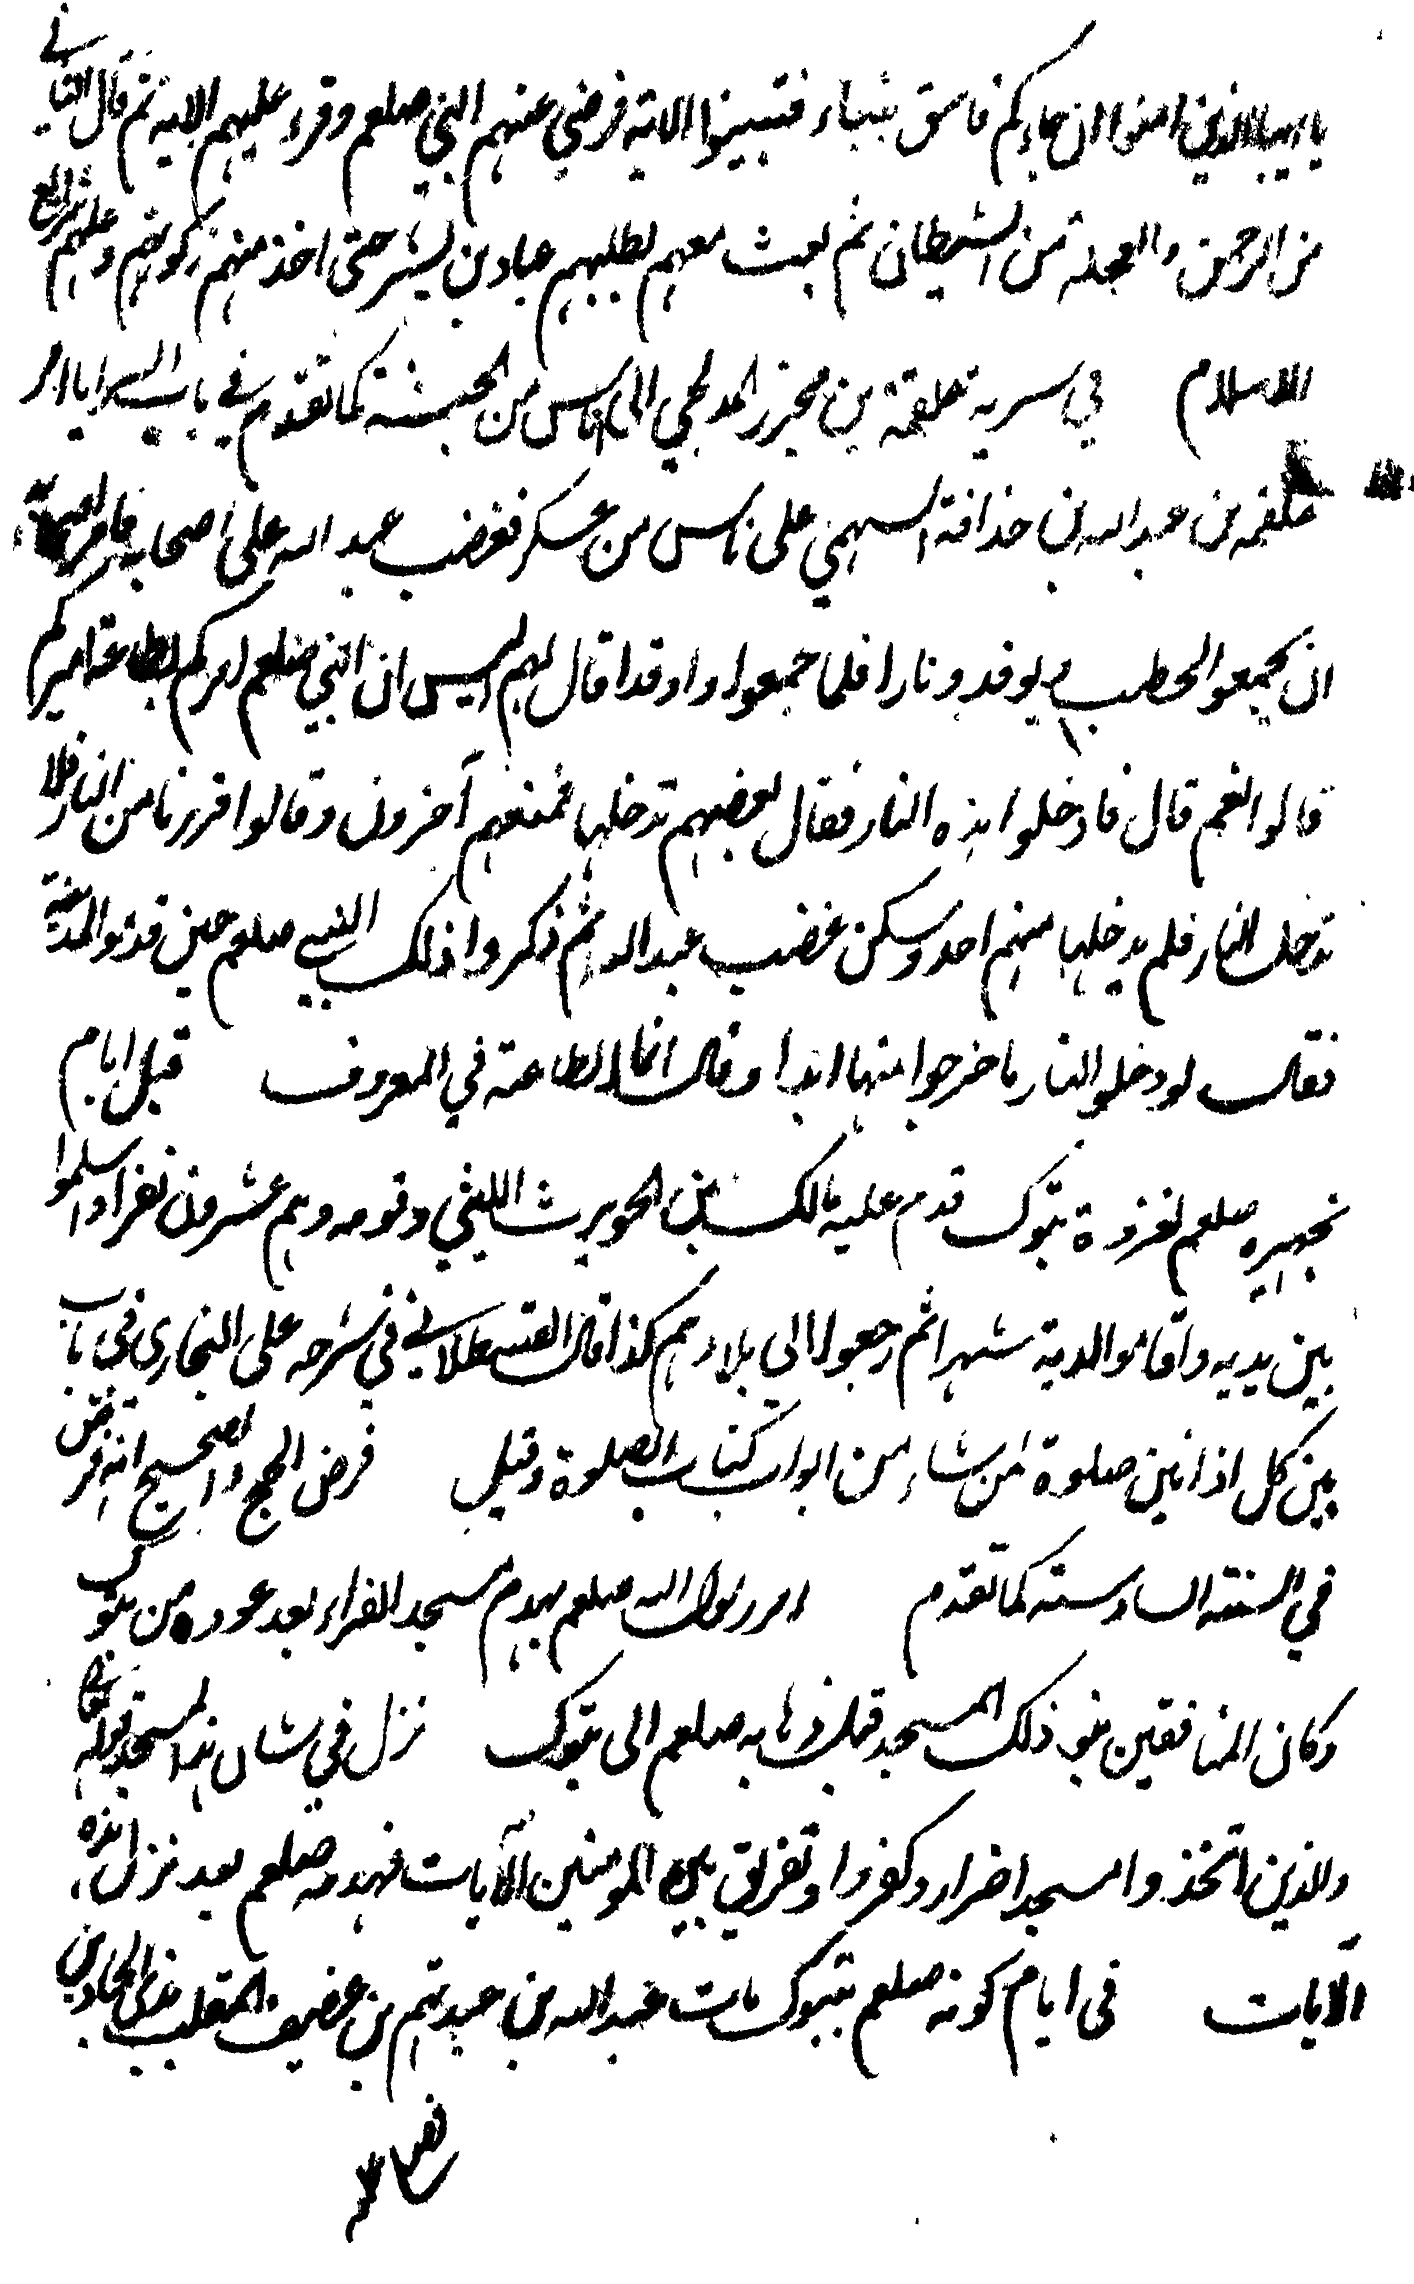 يا ايها الذين امنوا ان جاءكم فاسق بنباء فتبينوا الاية فرضي عنهم النبي صلعم وقرء عليهم الاية ثم قال التاني
من الرحمن والعجلة من الشيطان ثم بعث معهم لطلبهم عباد بن بشر حتى اخذ منهم زكوتهم وعلمهم شرايع
الاسلام في سرية علقمة بن مجزر المدلجي الى ناس من الحبشة كما تقدم في باب السرايا امر
علقمه بن عبد الله بن حذافة السهمي على ناس من عسكر فغضب عبد الله على اصحابه فامر
ان يجمعوا الحطب ويوقدونارا فلما جمعوا واوقدا قال لهم اليس ان النبي صلعم امركم بطاعة اميركم
قالوا نعم قال فادخلوا هذه النار فقال بعضهم ندخلها فمنعهم آخرون وقالوا فررنا من النار فلا
ندخل النار فلم يدخلها منهم احد وسكن غضب عبد الله ثم ذكروا ذلك النبي صلعم حين قدموا المدينة
فقال لو دخلوا النار ما خرجوا منها ابدا وقال انما الطاعة في المعروف قبل ايام
تجهيزه صلعم لغزوة تبوك قدم عليه مالك بن الحويرث الليثي وقومه وهم عشرون نفرا واسلموا
بين يديه واقاموا المدينة شهرا ثم رجعوا الى بلادهم كذا قال القسطلاني في شرحه على البخاري في باب
بين كل اذانين صلوة لمن شاء من ابواب كتاب الصلوة وقيل فرض الحج والصحيح انه فرض
في السنة السادسته كما تقدم امر رسول الله صلعم بهدم مسجد الضرار بعد عوده من تبوك
وكان المنافقين بنو ذلك المسجد قبل ذهابه صلعم الى تبوك نزل في شان هذا المسجد قوله تعالى
والذين اتخذوا مسجدا ضرارا وكفرا وتفريق بين المومنين الآيات فهدمه صلعم بعد نزل هذه
الآيات في ايام كونه صلعم بتبوك مات عبد الله بن عبد نهم بن عفيف الملقب بذي البجادين